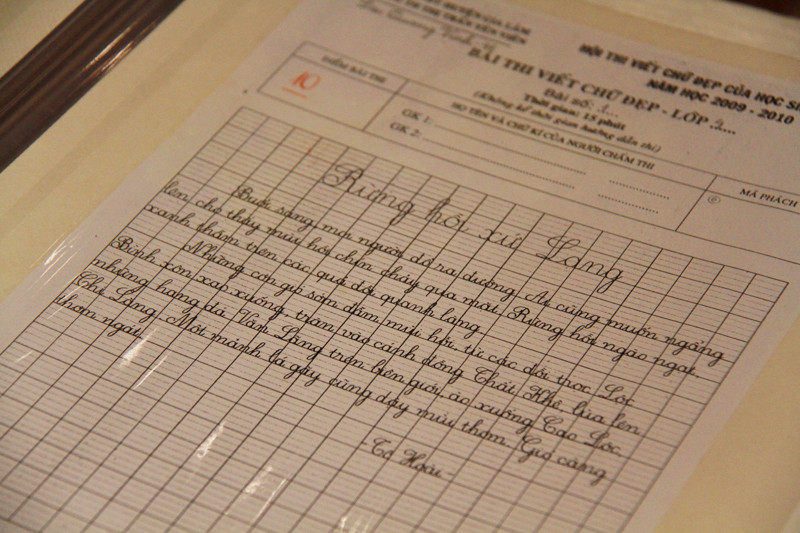 HUYỆN GIA LÂM
TH THỊ TRẤN YÊN VIÊN
HỘI THI VIẾT CHỮ ĐẸP CỦA HỌC SI
NĂM HỌC 2009 - 2010
BÀI THI VIẾT CHỮ ĐẸP - LỚP
Bài số: 1
Thời gian: 15 phút
(Không kể thời gian hướng dẫn thi)
ĐIỂM BÀI THI
10
HỌ TÊN VÀ CHỮ KÍ CỦA NGƯỜI CHẤM THI
GK 1:
GK 2:
MÃ PHÁCH
Rừng hồi xứ Lạng
Buổi sáng mọi người đổ ra đường. Ai cũng muốn ngẩng
lên cho thấy mùi hồi chín chảy qua mặt. Rừng hồi ngào ngạt,
xanh thẫm trên các quả đồi quanh làng.
Những cơn gió sớm đẫm mùi hồi từ các đồi trọc Lộc
Bình xôn xao xuống, tràn vào cánh đồng Thất Khê, lùa lên
những hang đá Văn Lãng trên biên giới, ào xuống Cao Lộc,
Chi Lăng. Mỗi mảnh lá gãy cũng dậy mùi thơm. Gió càng
thơm ngát.
- Tô Hoài -